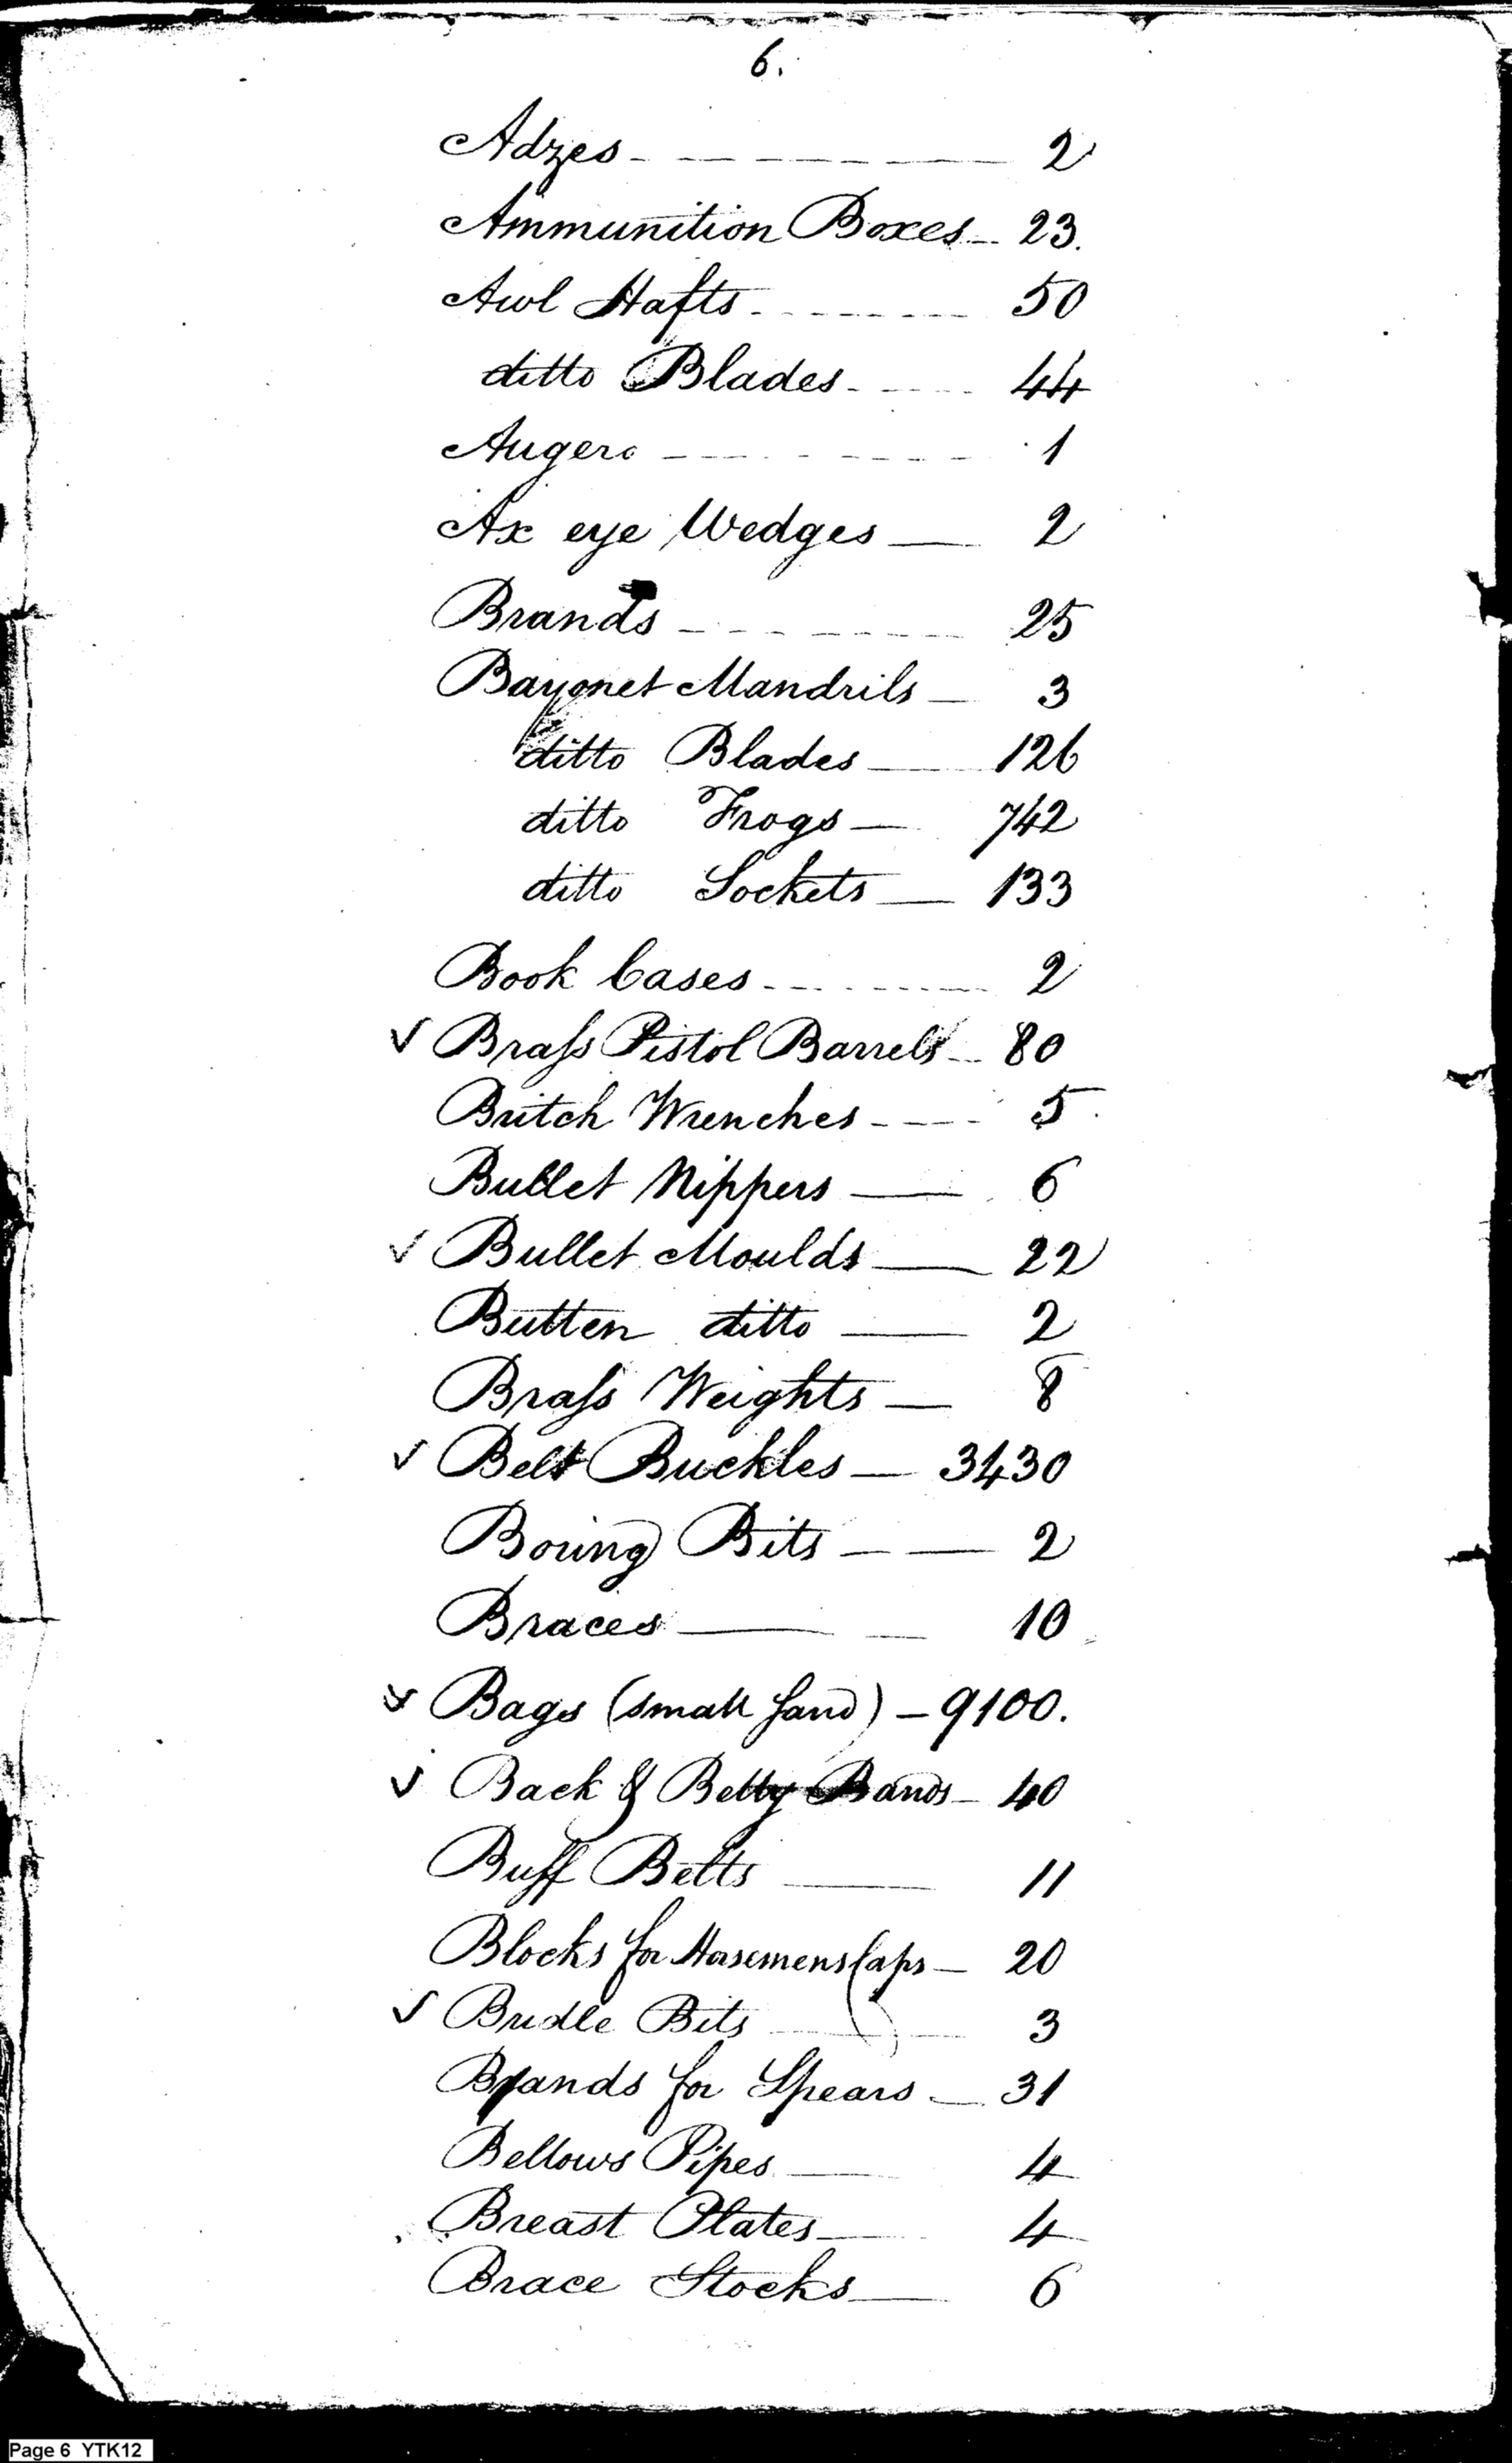 6.
Adzes - - - - - - 2
Ammunition Boxes - 23.
Awl Hafts - - - - - 50
ditto Blades - - - 44
Augers - - - - - - 1
Ax eye Wedges — 2
Brands - - - - - - 25
Bayonet Mandrils — 3
ditto Blades — 126
ditto Frogs — 742
ditto Sockets — 133
Book Cases - - - - 2
✓ Braſs Pistol Barrels - 80
Britch Wrenches - - - 5
Bullet Nippers — 6
✓ Bullet Moulds — 22
Butten ditto — 2
Braſs Weights — 8
✓ Belt Buckles — 3430
Boring Bits — — 2
Braces — — 10
✓ Bags (small sand) — 9100.
✓ Back & Belly Bands — 40
Buff Belts — 11
Blocks for Horsemens Caps — 20
✓ Bridle Bits — 3
Brands for Spears — 31
Bellows Pipes — 4
Breast Plates — 4
Brace Stocks — 6
Page 6 YTK12